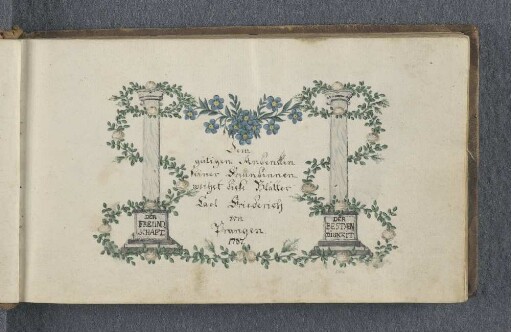 Dem
gütigen Andenken
seiner Freundinnen
weihet diese Blätter
Carl Friederich
von
Prangen
1787
DER
FREUND
SCHAFT
DER
BESTÆN
DIGKEIT